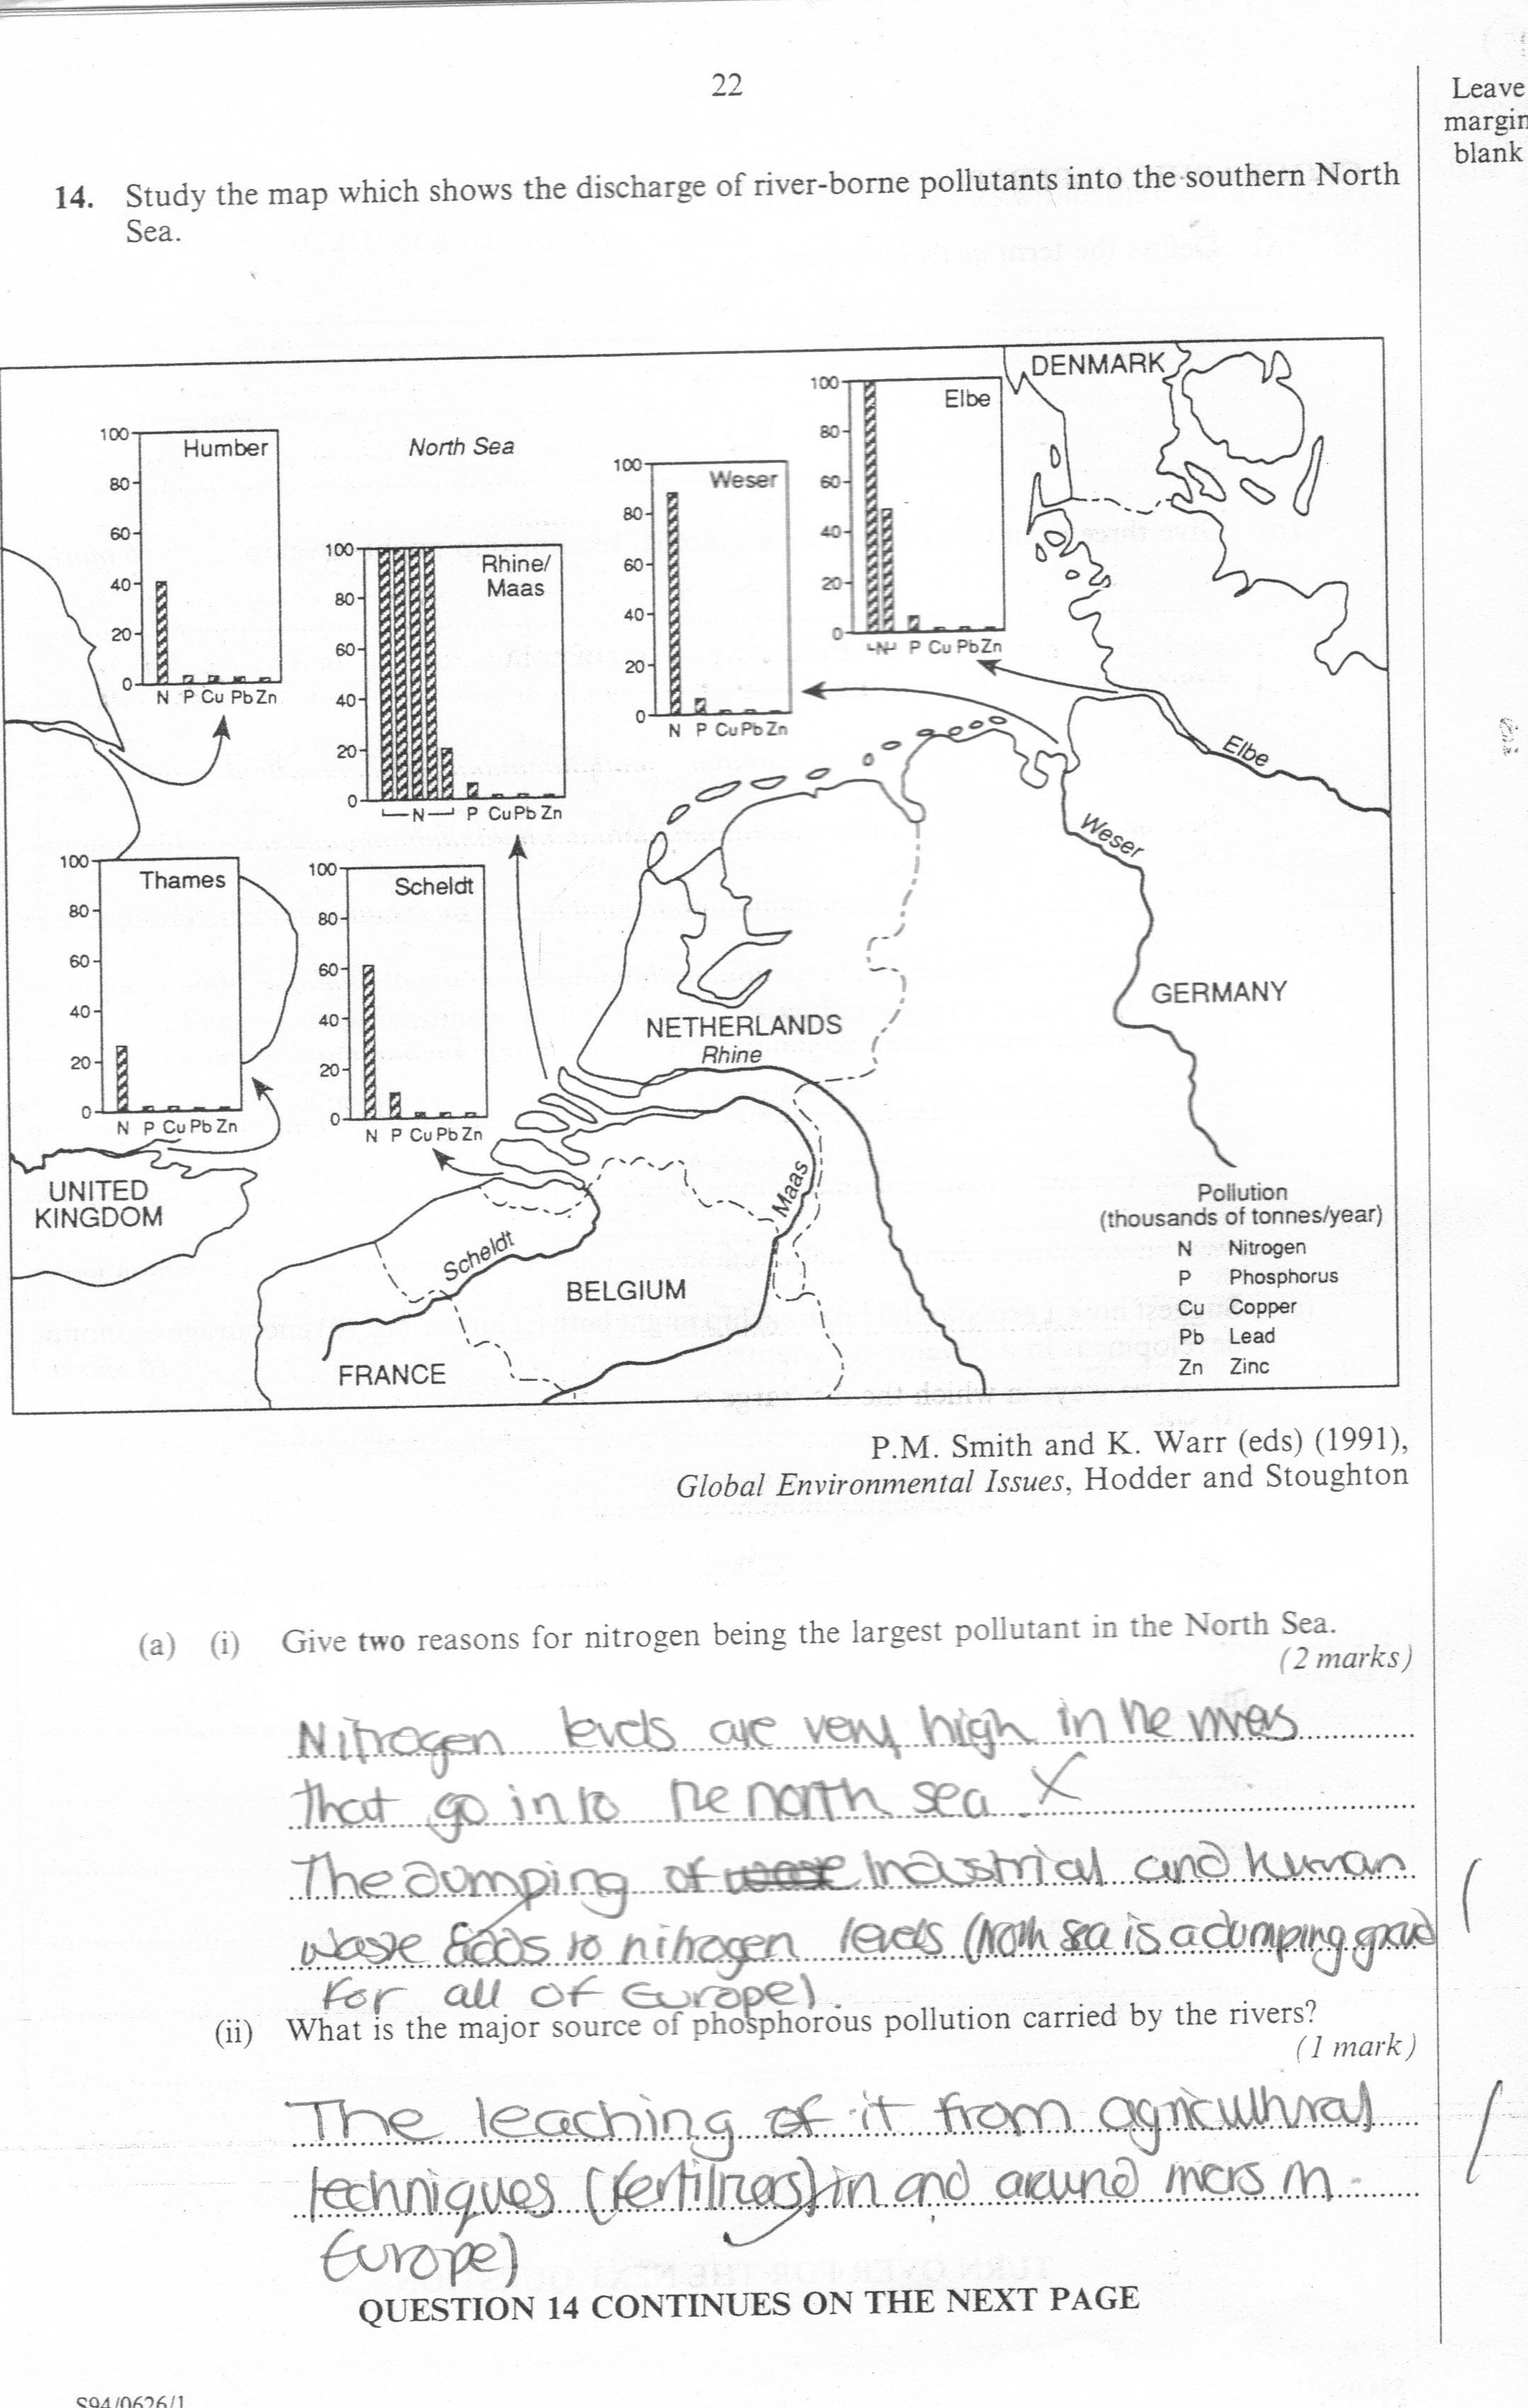 22
Leave
margin
blank
14. Study the map which shows the discharge of river-borne pollutants into the southern North
Sea.
DENMARK
North Sea
Humber
100
80
60
40
20
0
N P Cu Pb Zn
Rhine/
Maas
100
80
60
40
20
0
N P Cu Pb Zn
Weser
100
80
60
40
20
0
N P Cu Pb Zn
Elbe
100
80
60
40
20
0
N P Cu Pb Zn
Elbe
Weser
Thames
100
80
60
40
20
0
N P Cu Pb Zn
Scheldt
100
80
60
40
20
0
N P Cu Pb Zn
GERMANY
NETHERLANDS
Rhine
UNITED
KINGDOM
Maas
Scheldt
BELGIUM
FRANCE
Pollution
(thousands of tonnes/year)
N Nitrogen
P Phosphorus
Cu Copper
Pb Lead
Zn Zinc
P.M. Smith and K. Warr (eds) (1991),
Global Environmental Issues, Hodder and Stoughton
(a) (i) Give two reasons for nitrogen being the largest pollutant in the North Sea.
(2 marks)
Nitrogen levels are very high in the rivers
that go into the north sea. X
The dumping of Industrial and human
waste adds to nitrogen levels (North sea is a dumping ground
for all of Europe).
(ii) What is the major source of phosphorous pollution carried by the rivers?
(1 mark)
The leaching of it from agricultural
techniques (fertilizers) in and around rivers in
Europe)
QUESTION 14 CONTINUES ON THE NEXT PAGE
S94/0626/1